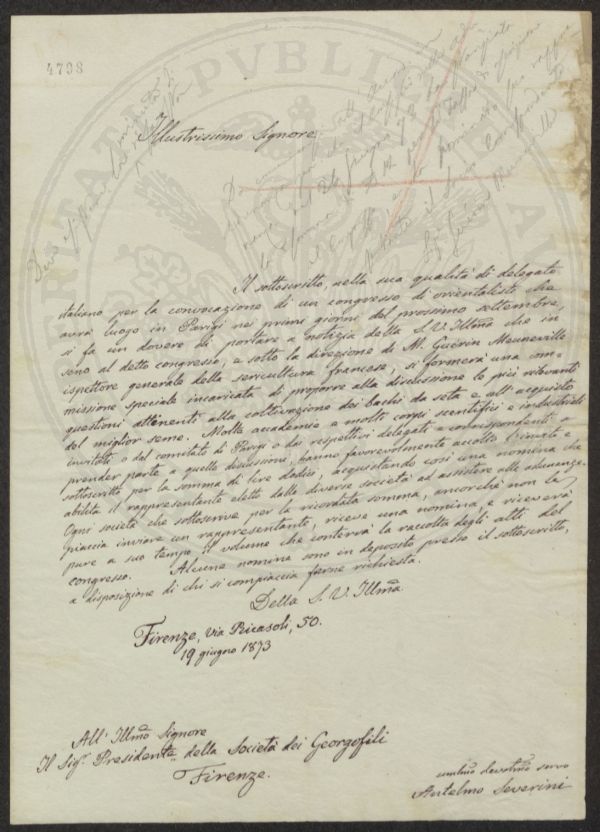 4798
Illustrissimo Signore,
Il sottoscritto, nella sua qualità di delegato
italiano per la convocazione di un congresso di orientalisti che
avrà luogo in Parigi nei primi giorni del prossimo settembre,
si fa un dovere di portare a notizia della S. V. Illma che in
seno al detto congresso, e sotto la direzione di M. Guérin Meuneville
ispettore generale della sericultura francese, si formerà una com=
missione speciale incaricata di proporre alla discussione le più rilevanti
questioni attenenti alla coltivazione dei bachi da seta e all'acquisto
del miglior seme. Molte accademie e molti corpi scientifici e industriali
invitati o dal comitato di Parigi o dai respettivi delegati e corrispondenti a
prender parte a quelle discussioni, hanno favorevolmente accolto l'invito e
sottoscritto per la somma di lire dodici, acquistando così una nomina che
abilita il rappresentante eletto dalle diverse società ad assistere alle adunanze.
Ogni società che sottoscrive per la ricordata somma, ancorchè non le
piaccia inviare un rappresentante, riceve una nomina e riceverà
pure a suo tempo il volume che conterrà la raccolta degli atti del
congresso. Alcune nomine sono in deposito presso il sottoscritto,
a disposizione di chi si compiaccia farne richiesta.
Della S. V. Illma
Firenze, via Ricasoli, 50.
19 giugno 1873
All' Illmo Signore
Il Sigr Presidente della Società dei Georgofili
Firenze.
umilmo devotmo servo
Antelmo Severini